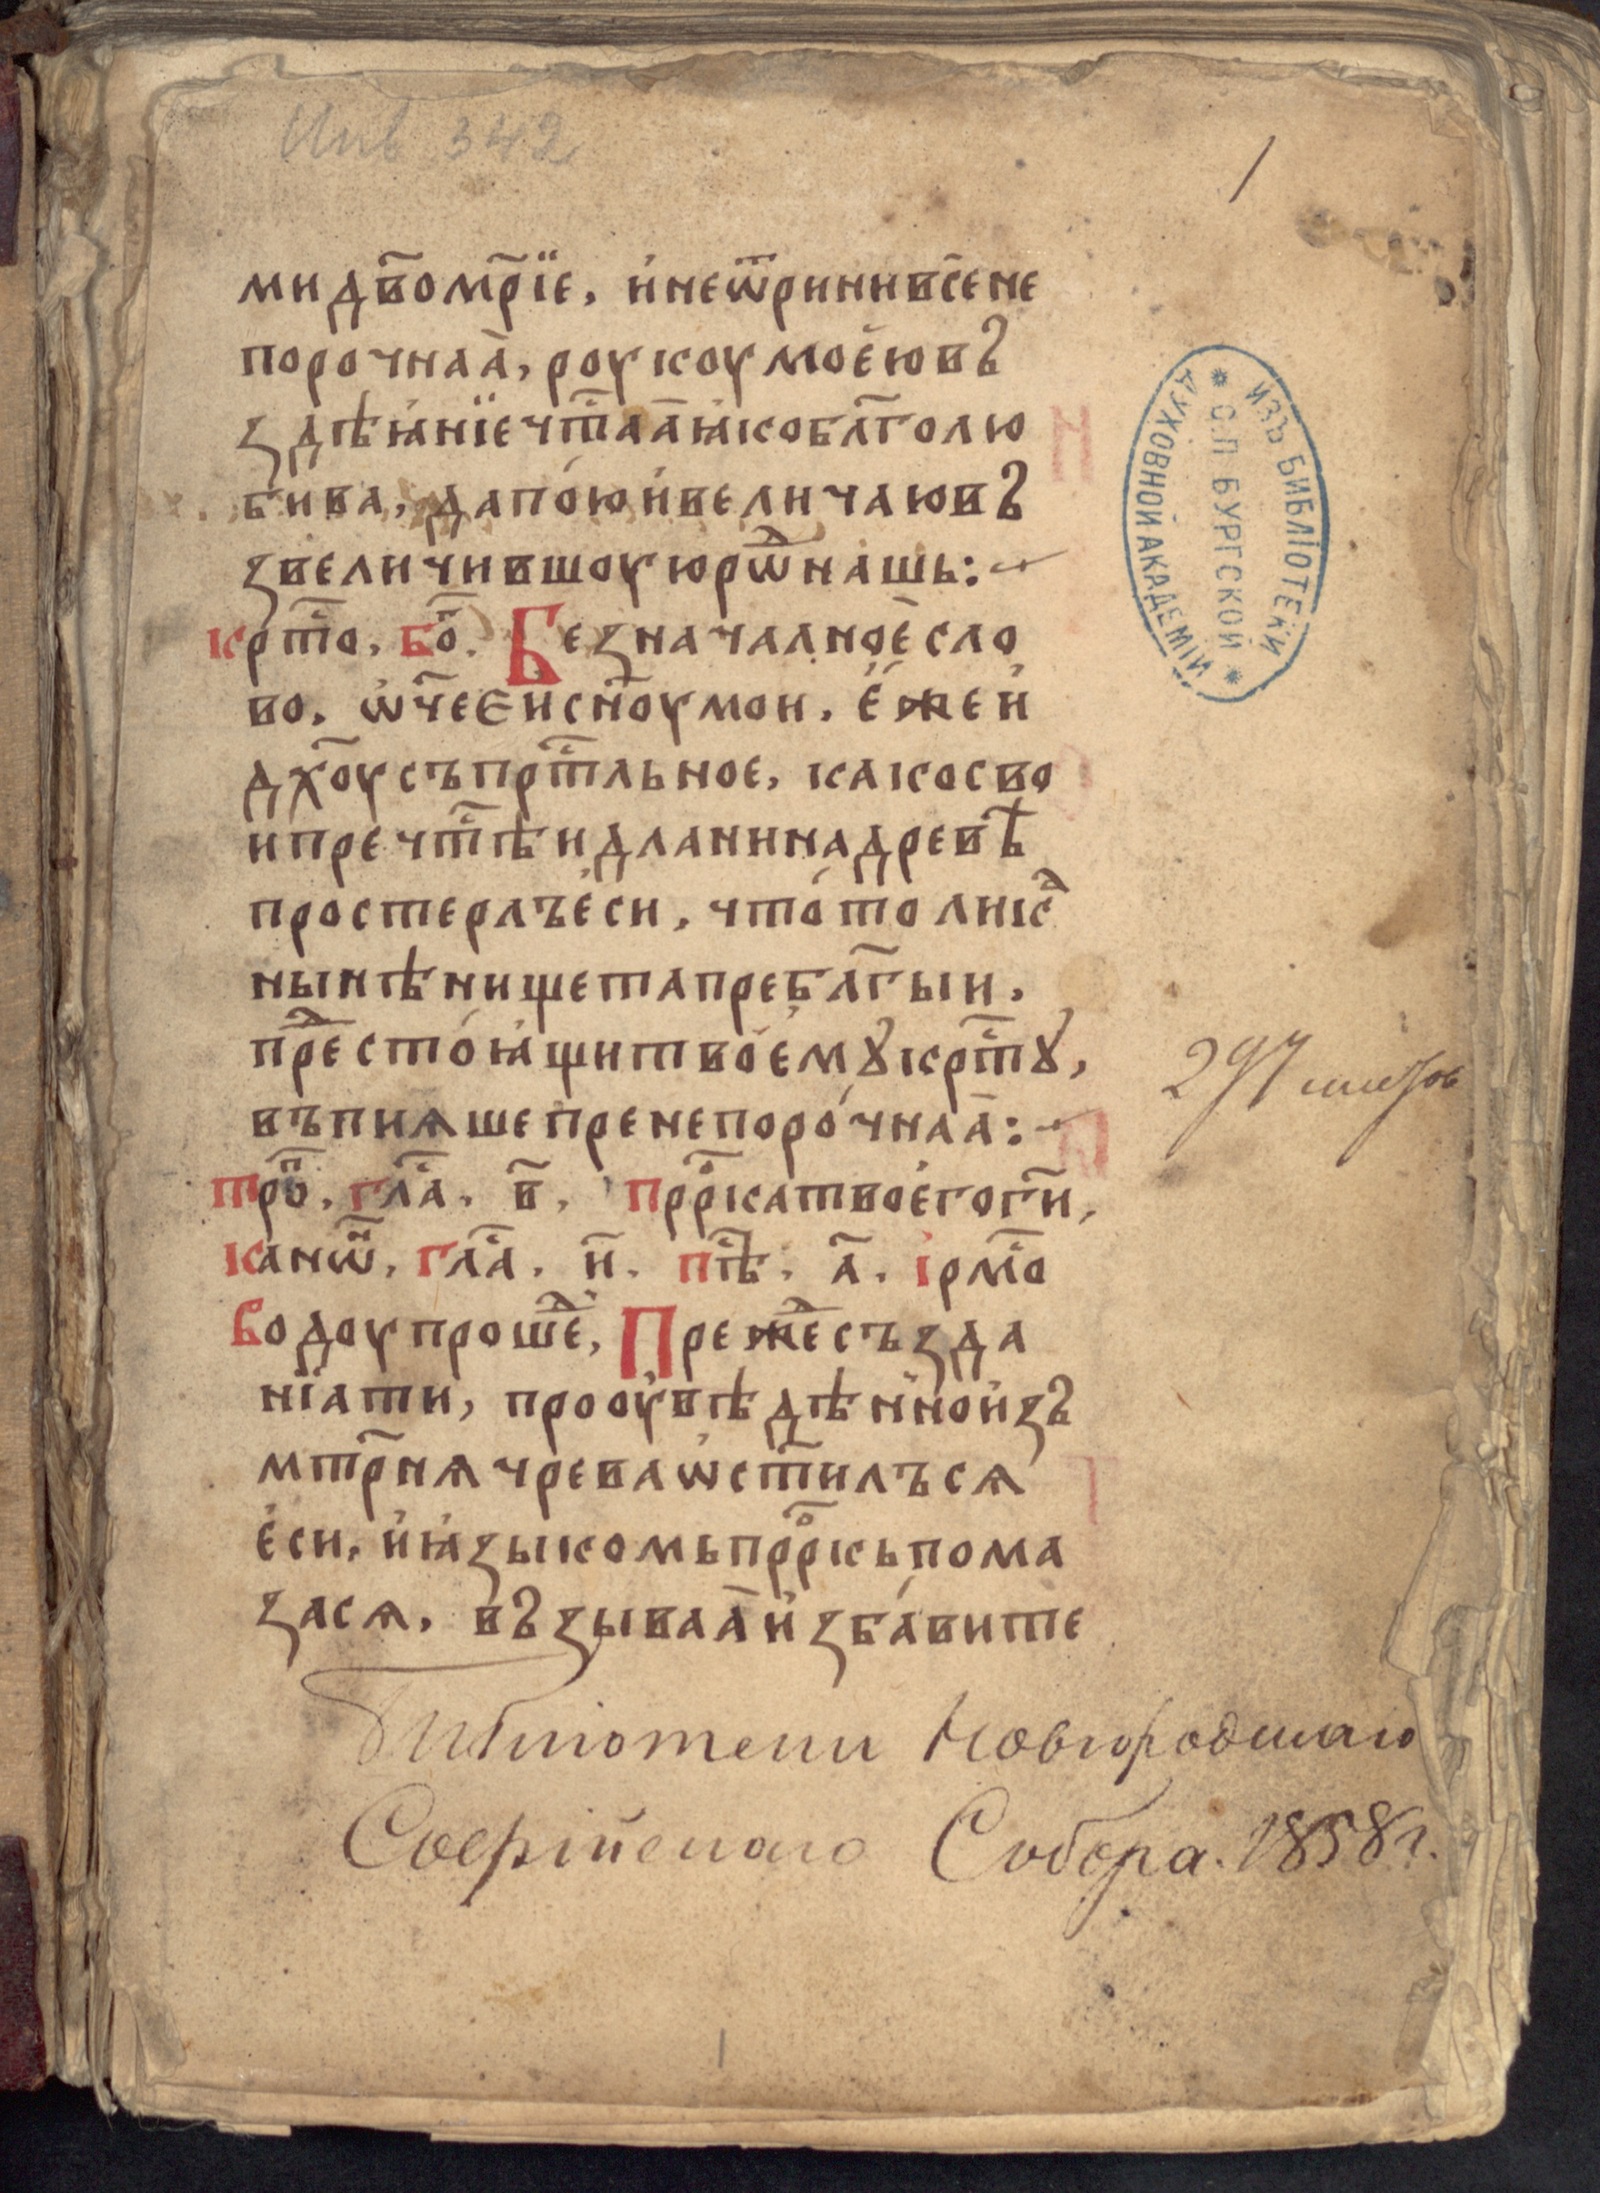 Инв 342
1
ми дв҃о мр҃їе, и҆ не ѿрини всⷭ҇ене
порочнаа҆, роукоу мое҆ю въ
здѣꙗ҆нїе чⷭ҇таа҆ ꙗ҆ко бл҃голю
бива, да пою̀ и҆ величаю въ
звеличившоую рѡⷣ нашь:~
крⷭ҇то, боⷢ҇. Безначалное҆ сло
во, ѡ҆ч҃е єи сн҃оу мои, є҆же и҆
дх҃оу съпрⷭ҇тльное, како сво
и пречⷭ҇тѣи длани на древѣ
простерлъ є҆си, что̀ толикⷶ
нынѣ нищета пребл҃гыи,
прⷣестоꙗ҆щи твое҆мꙋ крⷭ҇тꙋ,
въпиѧше пренепоро́чнаа҆:~
троⷫ҇, глⷭ҇а, в҃, прⷪ҇рка твоє҆го гп҃и,
канѡⷩ҇, глⷭ҇а, и҃, пⷭ҇ѣ, а҃, ірмⷭ҇о
Водоу прошеⷣ, Прежⷣе създа
нїа ти, проꙋ҆вѣдѣнно и҆зъ
мт҃рнѧ чрева ѡ҆ст҃илъ сѧ
є҆си, и҆ ꙗ҆зыкомь прⷪ҇ркь пома
засѧ, възываа҆ и҆зба́вите
ИЗЪ БИБЛІОТЕКИ
* С.П БУРГСКОЙ *
ДУХОВНОЙ АКАДЕМІИ
297 листов
Библіотеки Новгородскаго
Софійскаго Собора. 1858 г.